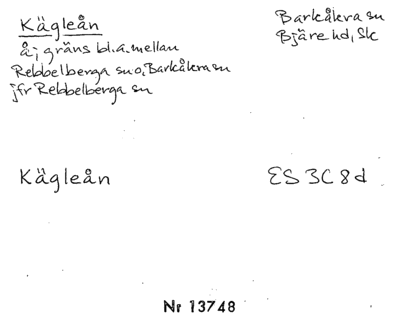 Kägleån
å; gräns bl.a. mellan
Rebbelberga sn o. Barkåkra sn
jfr Rebbelberga sn
Barkåkra sn
Bjäre hd, Sk
Kägleån
ES 3C 8d
Nr 13748